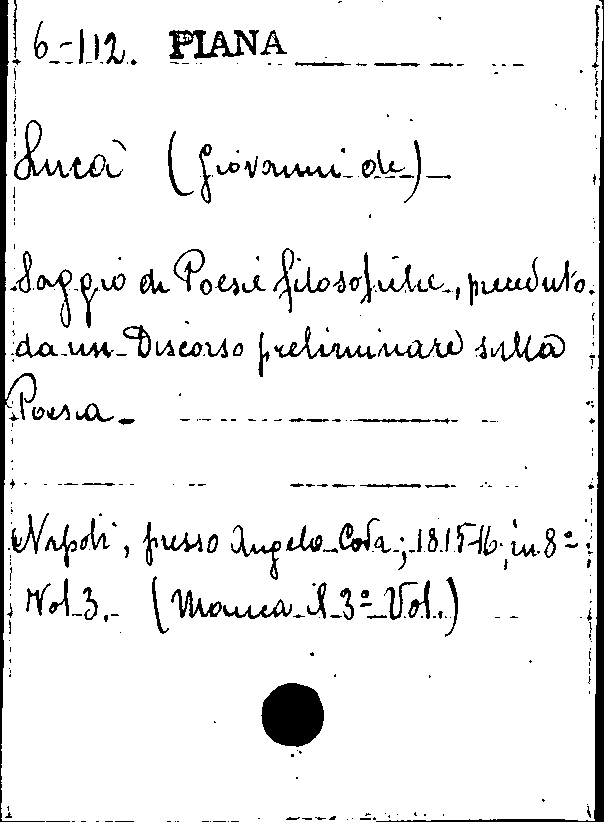 6-112. PIANA
Luca (Giovanni de)
Saggio di Poesie filosofiche, preceduto
da un Discorso preliminare sulla
Poesia
Napoli, presso Angelo Coda; 1815-16, in 8º
Vol 3. (Manca il 3º Vol.)